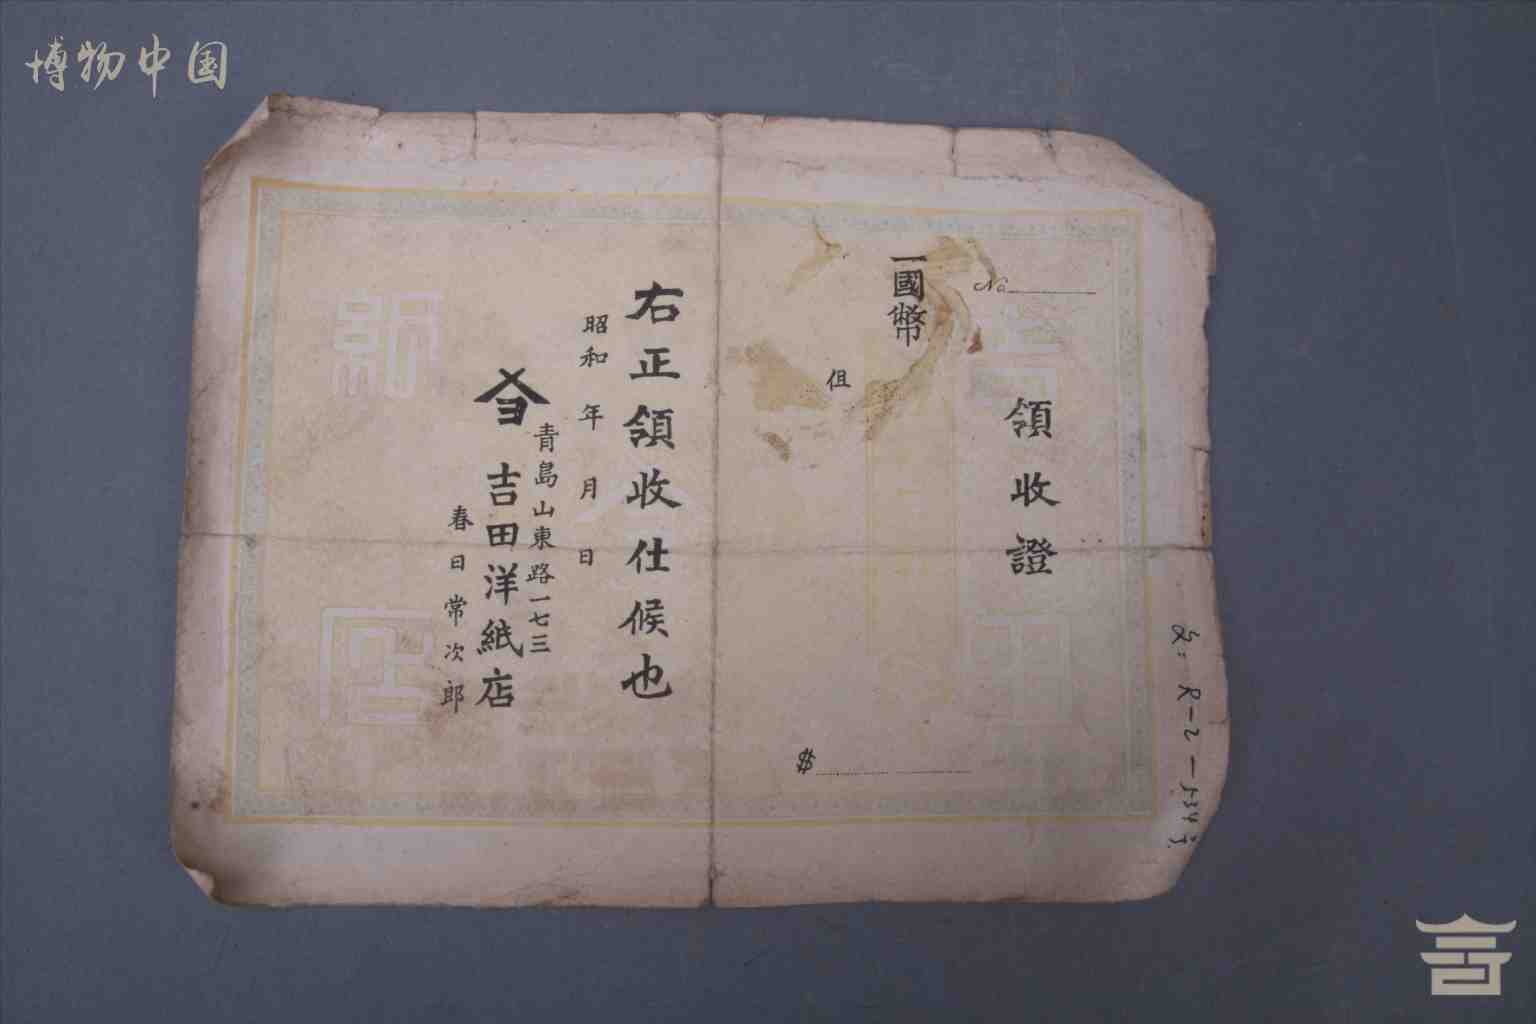 博物中国
No
領收證
一國幣
但
$
右正領收仕候也
昭和 年 月 日
青島山東路一七三
吉田洋紙店
春日常次郎